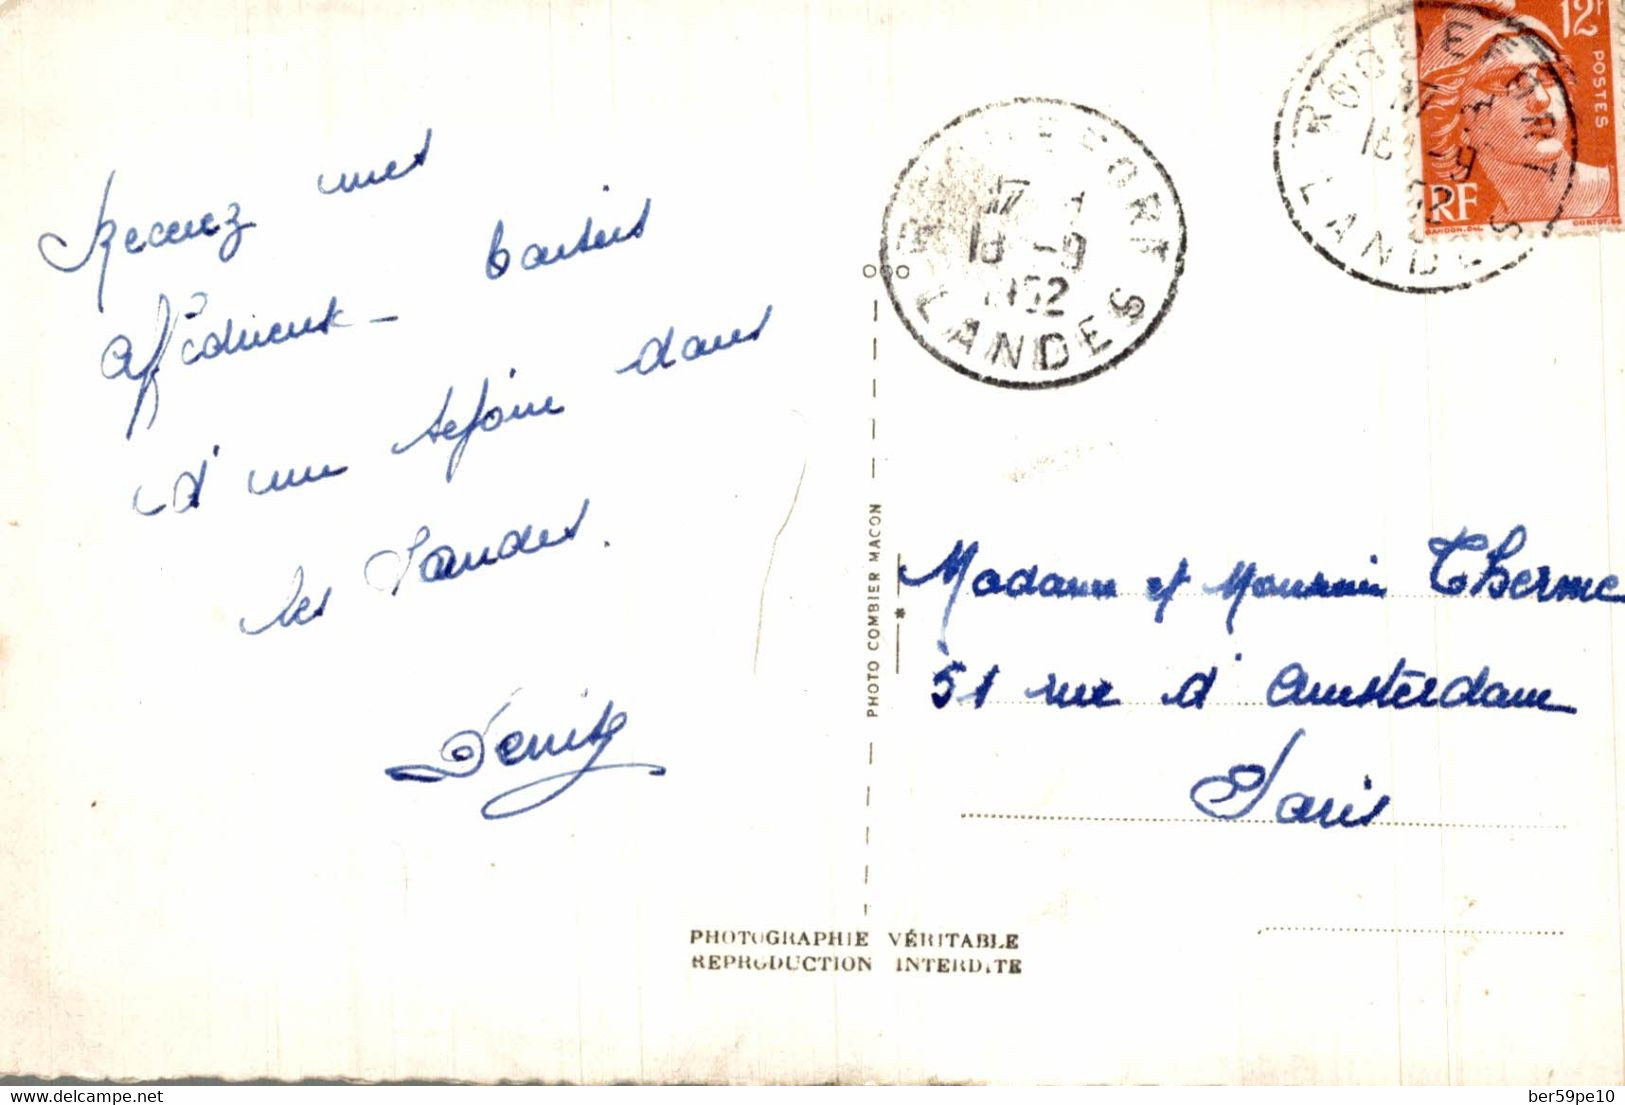 Recevez mes
affectueux - baisers
d'un séjour dans
les Landes.
Denise
ROQUEFORT
18 -9
1952
LANDES
ROQUEFORT
18 -9
52
LANDES
12F
POSTES
RF
GANDON.DEL
CORTOT.SC
PHOTO COMBIER MACON
Madame et Monsieur Therme
51 rue d'Amsterdam
Paris
PHOTOGRAPHIE VÉRITABLE
REPRODUCTION INTERDITE
delcampe.net
ber59pe10